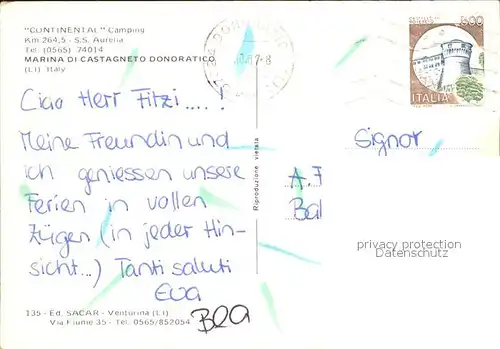 "CONTINENTAL" Camping
Km 264,5 - S.S. Aurelia
Tel: (0565) 74014
MARINA DI CASTAGNETO DONORATICO
(LI) Italy
600
ITALIA
Ciao Herr Fitzi.....!
Meine Freundin und
ich geniessen unsere
Ferien in vollen
Zügen (in jeder Hin-
sicht...) Tanti saluti
Eva
Bea
Riproduzione vietata
Signor
A. F
Bal
privacy protection
Datenschutz
135 - Ed. SACAR - Venturina (LI)
Via Fiume 35 - Tel. 0565/852054